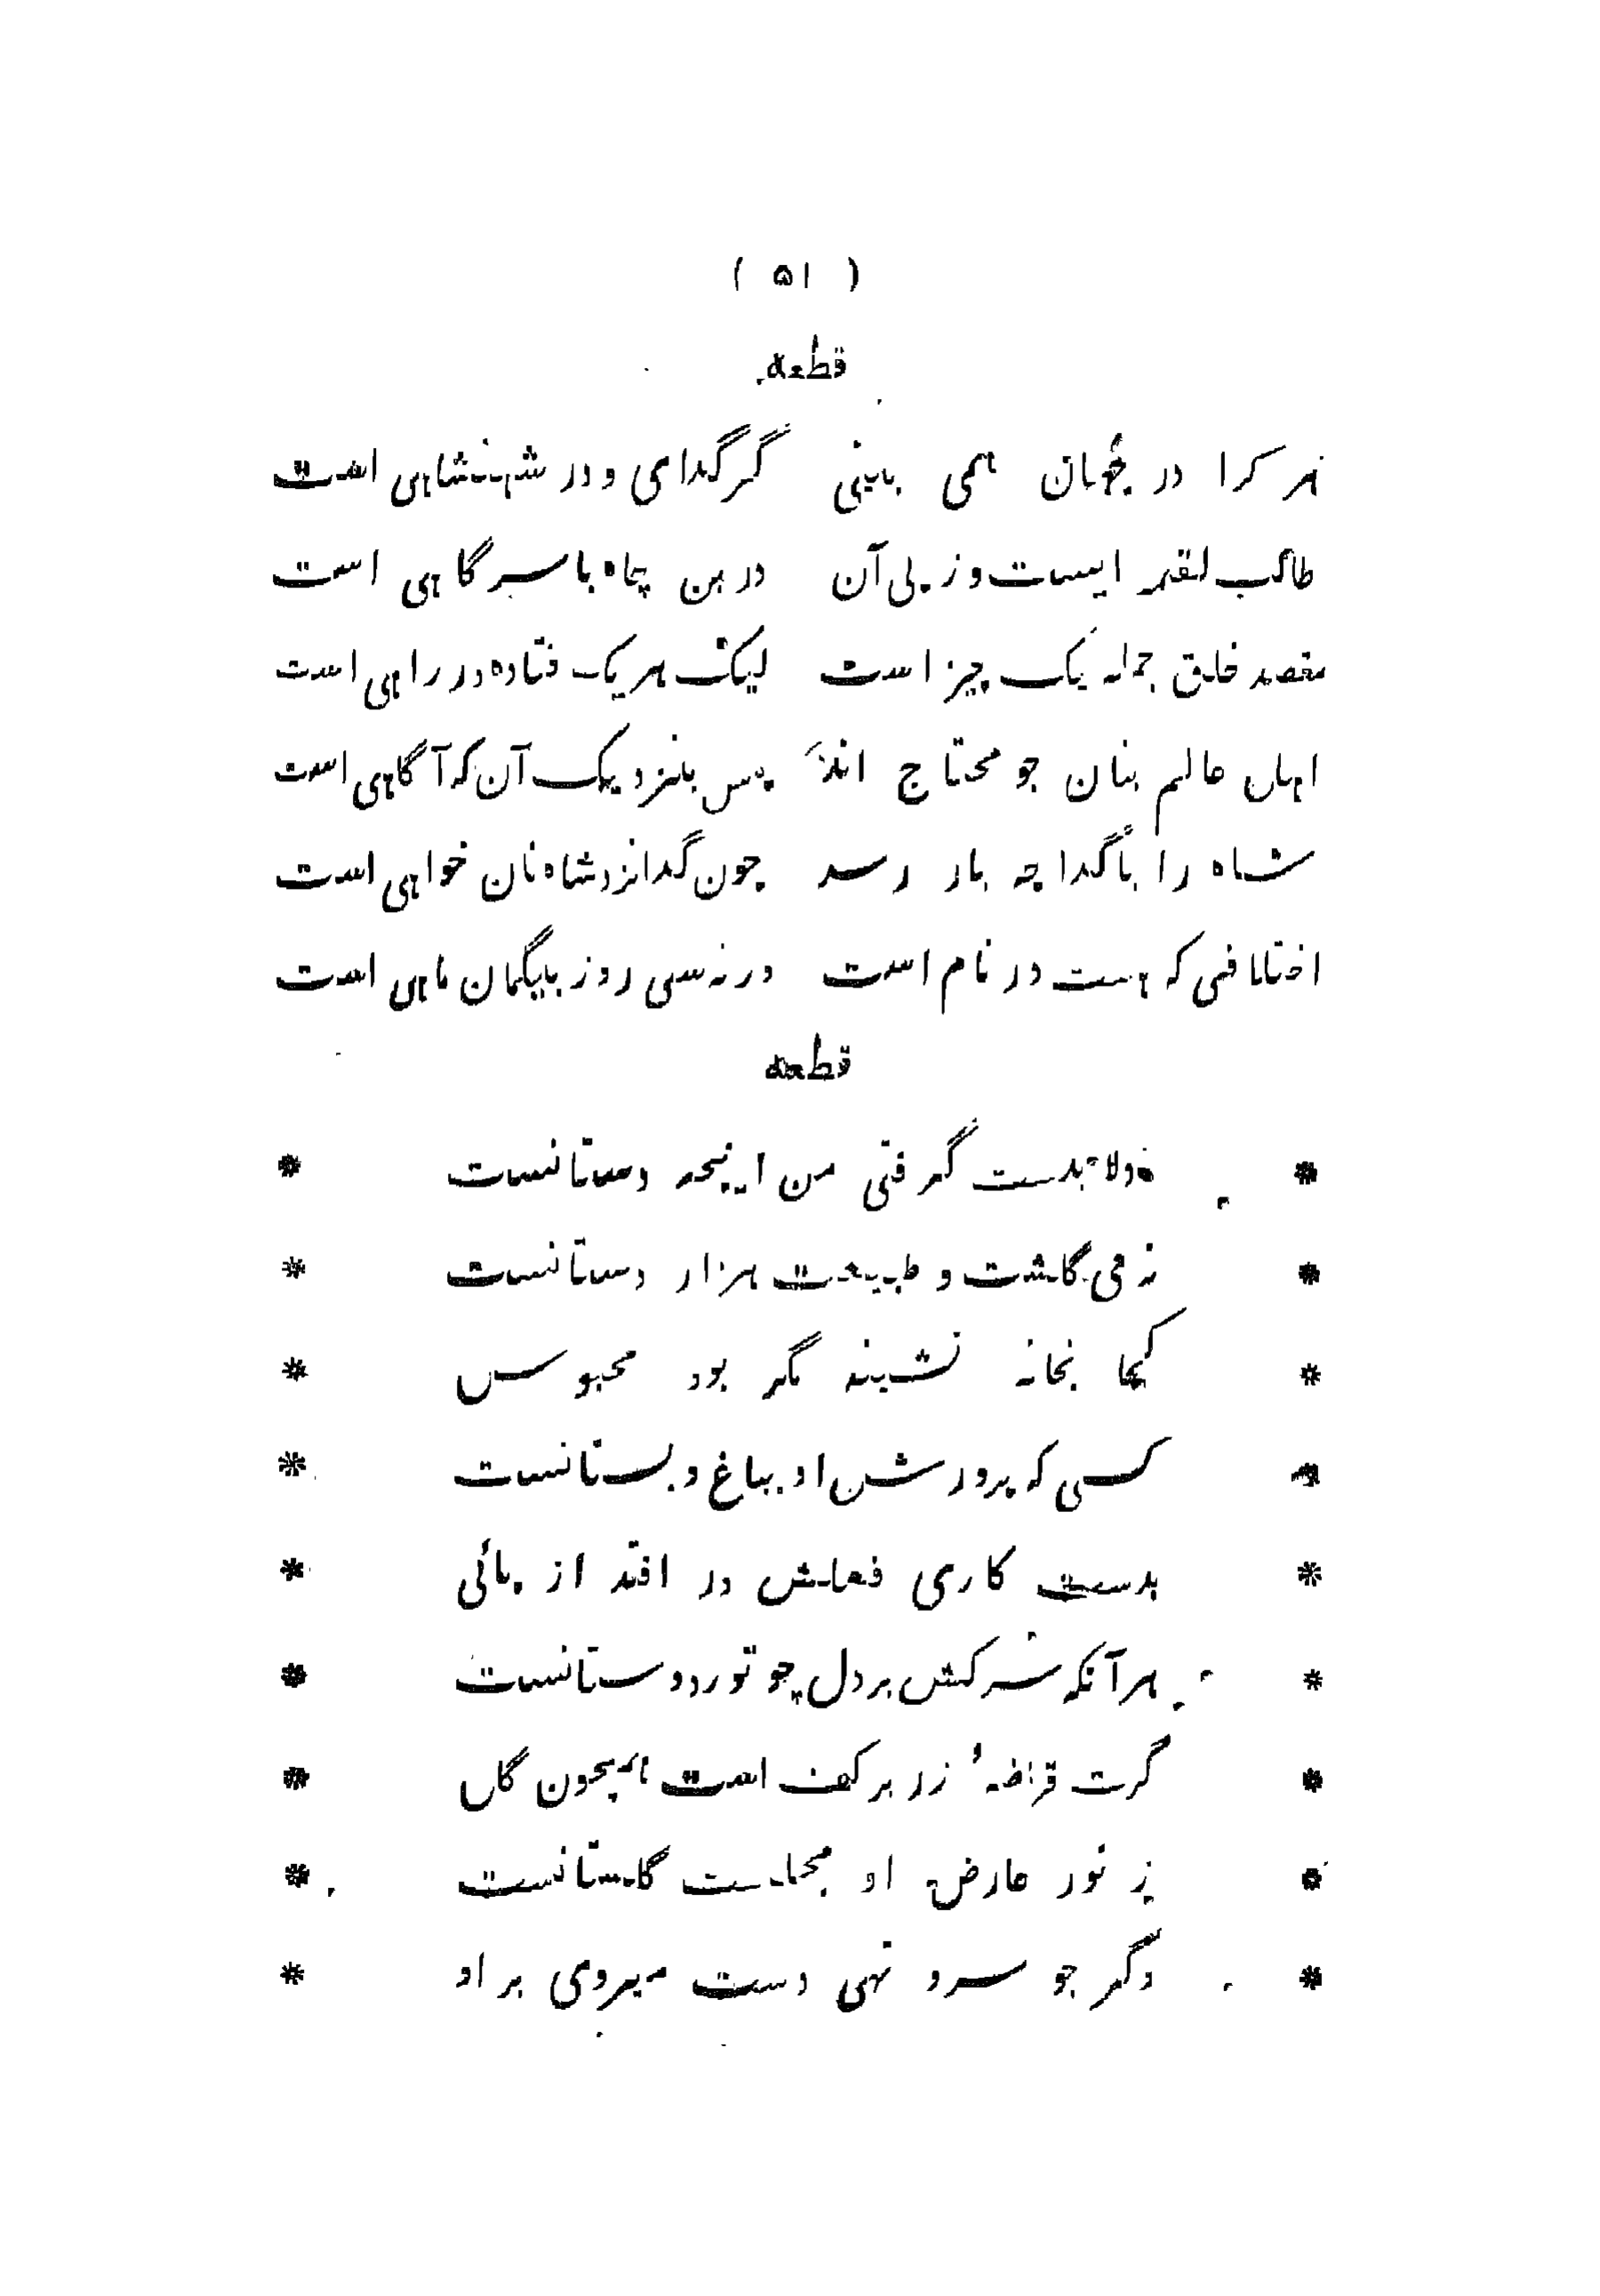 ( ۵۱ )
قطعه
هر کرا در جهان همی بینی گر گدای و در شهنشاهی است
طالب لقمه ایست وز پی آن در بن چاه یا سر گاهی است
مقصد خلق جمله یک چیز است لیک هر یک فتاده در راهی است
اهل عالم بنان چو محتاج اند پس بنزدیک آن که آگاهی است
شاه را با گدا چه بار رسد چون گدا نزد شاه نان خواهی است
اختلافی که هست در نام است ورنه سی روز بیگمان ماهی است
قطعه
* دلا بدست گرفتی من اینچه دستانست *
* نه می گذشت و طبیعت هزار دستانست *
* کجا بخانه نشیند مگر بود محبوس *
* کسی که پرورش او بباغ و بستانست *
* بدست کاری فعلش در افتد از پائی *
* هر آنکه سرکش بر دل چو تو ردوستانست *
* گرت قراضهٔ زر بر کف است همچون گل *
* ز نور عارض او مجلست گلستانست *
* وگر چو سرو تهی دست میروی بر او *